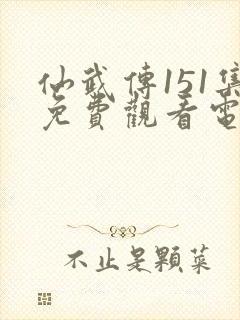 仙武傳151集
免費觀看電
不止是顆菜